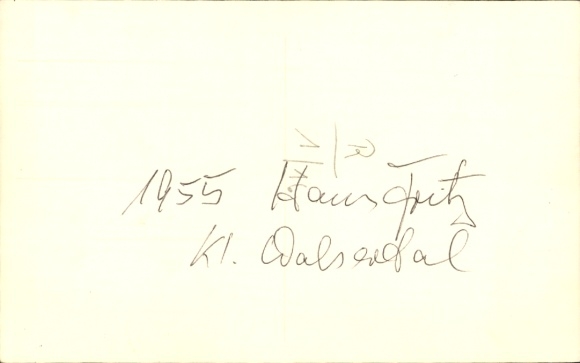 1955 Hans Fritz
Kl. Walsertal